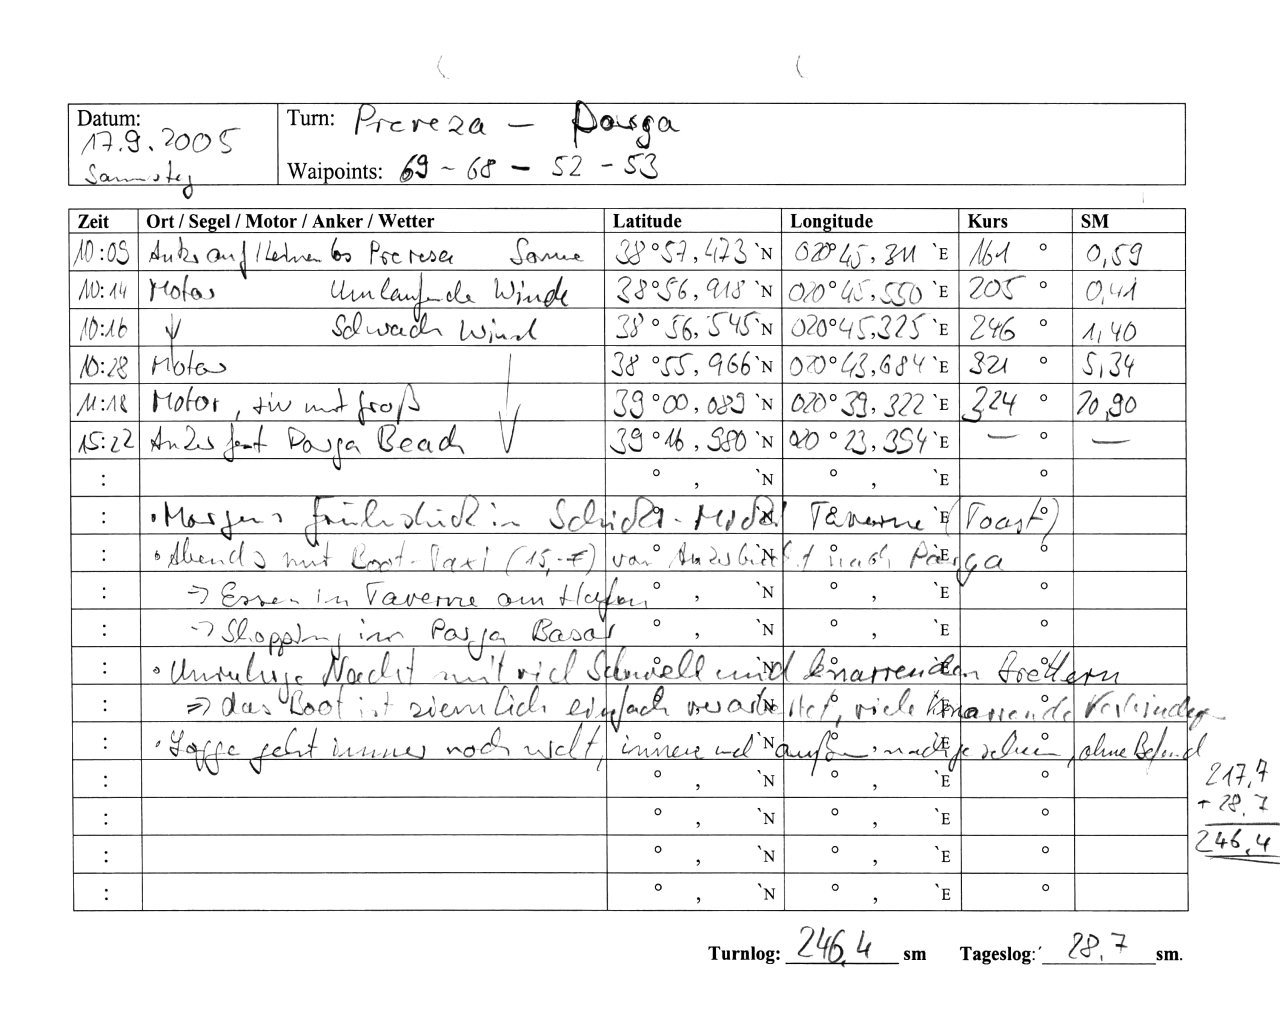 Datum: Turn: Preveza – Parga
17.9.2005
Samstag Waipoints: 69 - 68 - 52 - 53
Zeit Ort / Segel / Motor / Anker / Wetter Latitude Longitude Kurs SM
10:09 Anker auf / Leinen los Preveza Sonne 38°57,473`N 020°45,311`E 161° 0,59
10:14 Motor Umlaufende Winde 38°56,918`N 020°45,550`E 205° 0,41
10:16 ↓ Schwach Wind 38°56,545`N 020°45,325`E 246° 1,40
10:28 Motor 38°55,966`N 020°43,684`E 321° 5,34
11:18 Motor, mit Groß 39°00,089`N 020°39,322`E 324° 20,90
15:22 Anker fest Parga Beach 39°16,980`N 020°23,394`E —° —
: ° , `N ° , `E °
: • Morgens Frühstück in Schicki-Micki Taverne (Toast)
: • Abends mit Boot-Taxi (15,-€) von Ankerbucht nach Parga
: → Essen in Taverne am Hafen ° , `N ° , `E °
: → Shopping im Parga Basar ° , `N ° , `E °
: • Unruhige Nacht mit viel Schwell und knarrenden Brettern
: ⇒ das Boot ist ziemlich einfach verarbeitet, viele knarrende
: • Logge geht immer noch nicht, innen und außen nachgesehen, ohne Befund
: ° , `N ° , `E °
217,7
: ° , `N ° , `E °
+ 28,7
: ° , `N ° , `E °
246,4
: ° , `N ° , `E °
Turnlog: 246,4 sm Tageslog: 28,7 sm.